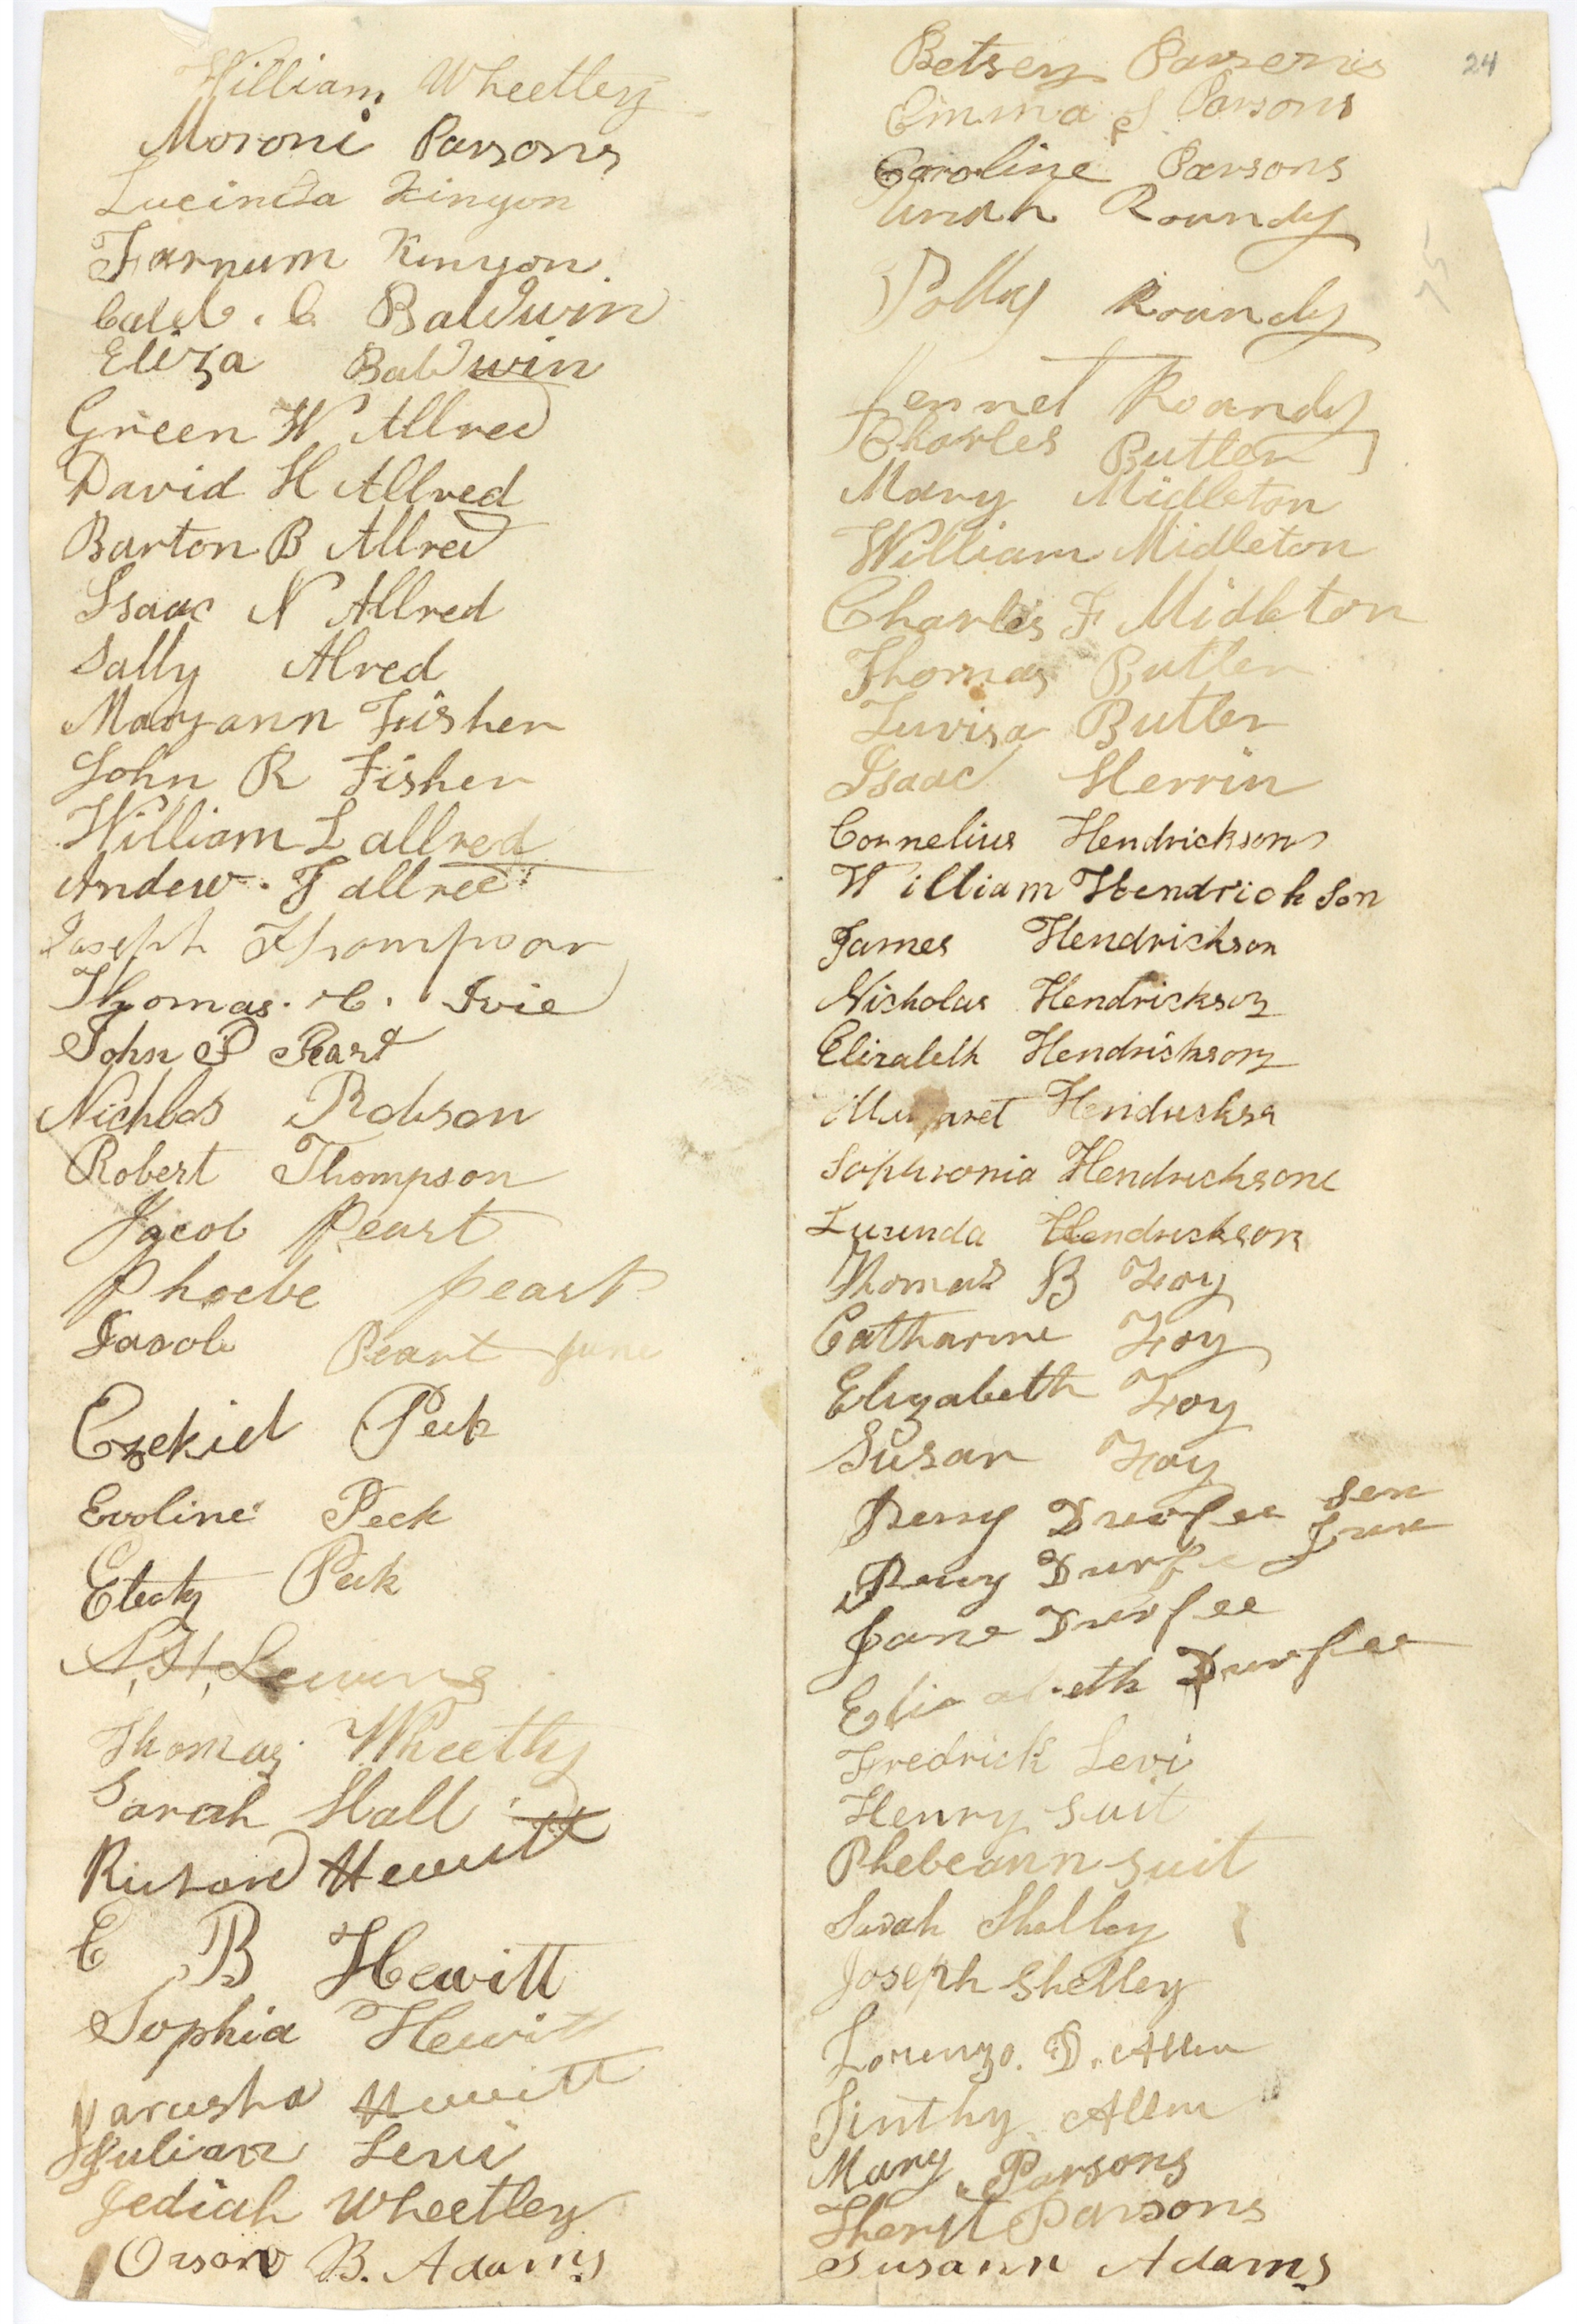 William Wheetley
Moroni Parsons
Lucinda Kinyon
Farnum Kinyon
Caleb . C Baldwin
Eliza Baldwin
Green W Allred
David H Allred
Barton B Allred
Isaac N Allred
Sally Alred
Maryann Fisher
John R Fisher
William L allred
Andew . J allred
Joseph Thompson
Thomas . C . Ivie
John P Peart
Nichlos Robson
Robert Thompson
Jacob Peart
Phoebe peart
Jacob Peart June
Ezekiel Peck
Evoline Peck
Electy Peck
Thomas Wheetly
Sarah Hall
Richard Hewitt
E B Hewitt
Sophia Hewitt
Jarusha Hewitt
Julian Levi
Jediah Wheetley
Orson B. Adams
24
Betsey Parsons
Emma S Parsons
Caroline Parsons
Uriah Roundy
25
Polly Roundy
Roundy
Charles Butler
Mary Midleton
William Midleton
Charles F Midleton
Thomas Butler
Luvisa Butler
Isaac Herrin
Cornelius Hendrickson
William Hendrickson
James Hendrickson
Nicholas Hendrickson
Elizabeth Hendrickson
Margaret Hendricksn
Sophronia Hendrickson
Lucinda Hendrickson
Thomas B Foy
Catharine Foy
Elizabeth Foy
Susan Foy
Perry Durfee Sen
Perry Durfe Jun
Jane Durfee
Elizabeth Durfee
Fredrick Levi
Henry Suit
Phebeann Suit
Sarah Shelley
Joseph Shelley
Lorenzo. D. Allen
Jinthy Allen
Mary Parsons
Parsons
Susann Adams